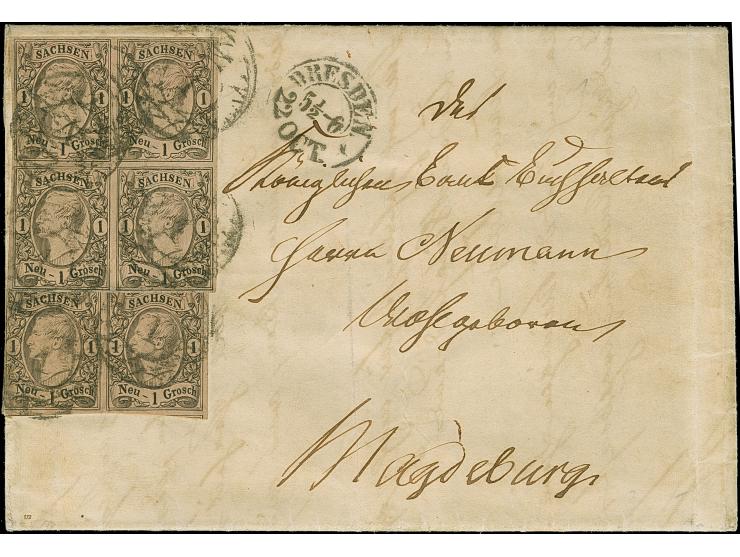 SACHSEN SACHSEN
1 1 1 1
Neu - 1 Grosch Neu - 1 Grosch
SACHSEN SACHSEN
1 1 1 1
Neu - 1 Grosch Neu - 1 Grosch
SACHSEN SACHSEN
1 1 1 1
Neu - 1 Grosch Neu - 1 Grosch
DRESDEN
5½-6
22 OCT.
Königlichen Bank
Herrn Neumann
Wohlgeboren
Magdeburg